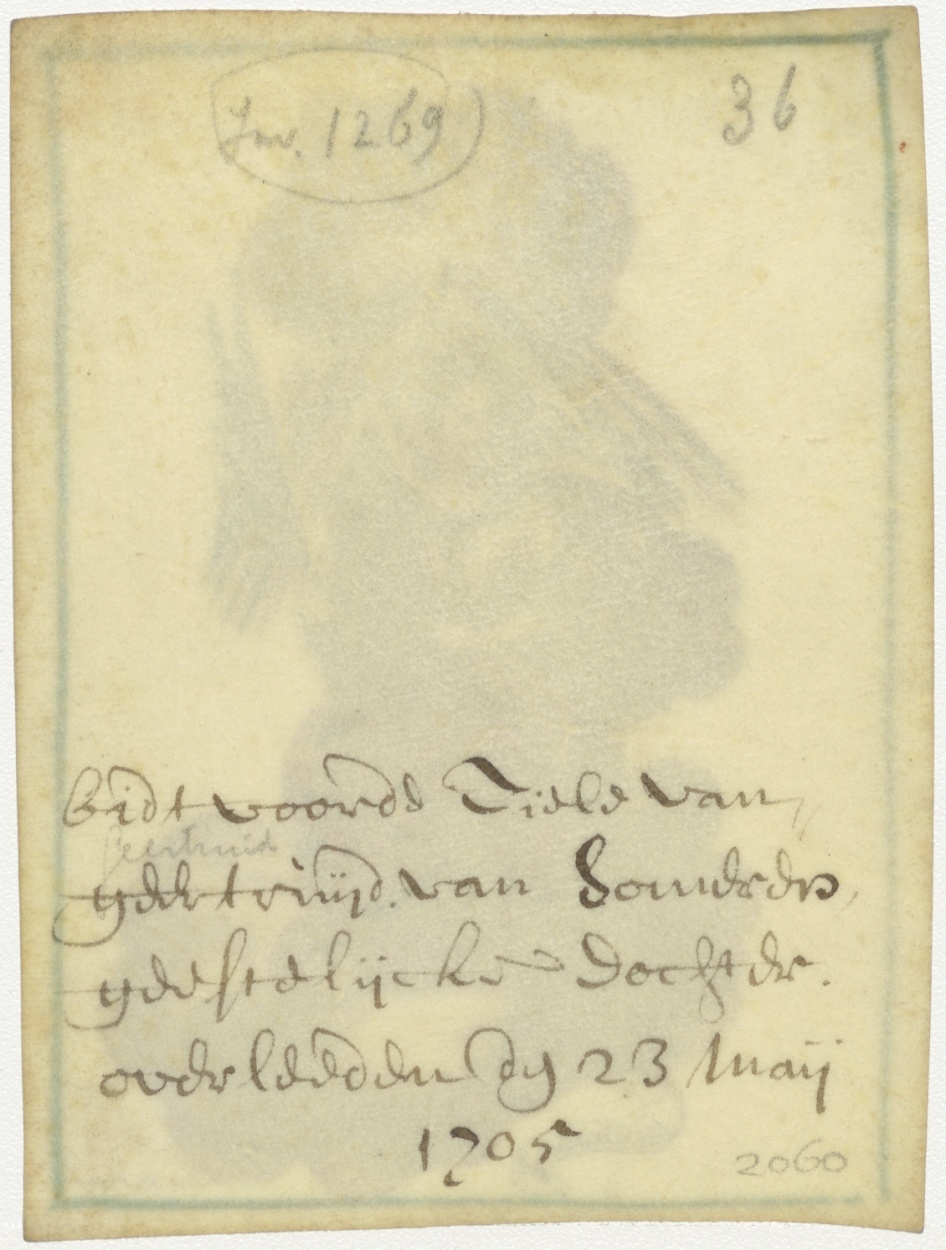 Inv. 1269
36
bidt voorde Siele van
Geertruid
geertruijd. van Someren,
geestelijcke dochter.
overleedden dij 23 Maij
1705
2060